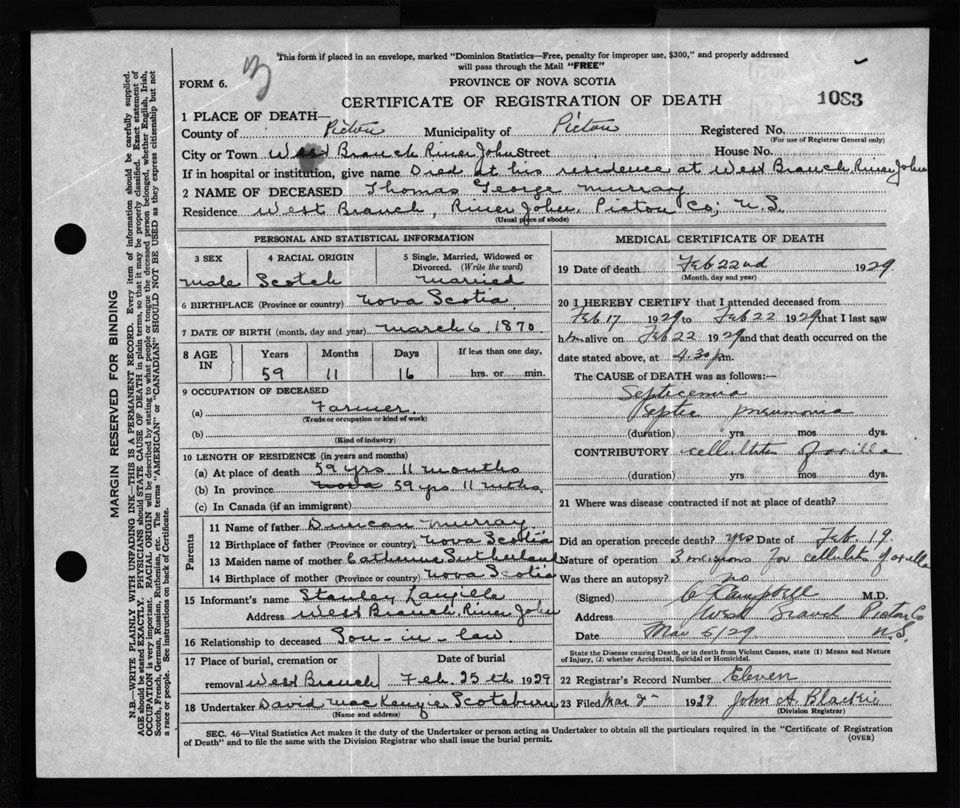 This form if placed in an envelope, marked "Dominion Statistics—Free, penalty for improper use, $300," and properly addressed
will pass through the Mail "FREE"
FORM 6.
PROVINCE OF NOVA SCOTIA
CERTIFICATE OF REGISTRATION OF DEATH
1083
1 PLACE OF DEATH—
County of Pictou Municipality of Pictou Registered No.
(For use of Registrar General only)
City or Town West Branch River John Street House No.
If in hospital or institution, give name Died at his residence at West Branch River John
2 NAME OF DECEASED Thomas George Murray
Residence West Branch, River John, Pictou Co; N.S.
(Usual place of abode)
PERSONAL AND STATISTICAL INFORMATION
3 SEX 4 RACIAL ORIGIN 5 Single, Married, Widowed or Divorced. (Write the word)
male Scotch married
6 BIRTHPLACE (Province or country) Nova Scotia
7 DATE OF BIRTH (month, day and year) March 6, 1870
8 AGE IN Years Months Days If less than one day,
59 11 16 hrs. or min.
9 OCCUPATION OF DECEASED
(a) Farmer
(Trade or occupation or kind of work)
(b)
(Kind of industry)
10 LENGTH OF RESIDENCE (in years and months)
(a) At place of death 59 yrs 11 months
(b) In province Nova 59 yrs 11 mths
(c) In Canada (if an immigrant)
Parents
11 Name of father Duncan Murray
12 Birthplace of father (Province or country) Nova Scotia
13 Maiden name of mother Catherine Sutherland
14 Birthplace of mother (Province or country) Nova Scotia
15 Informant's name Stanley Langille
Address West Branch River John
16 Relationship to deceased Son-in-law
17 Place of burial, cremation or Date of burial
removal West Branch Feb. 25th 1929
18 Undertaker David MacKenzie Scotsburn
(Name and address)
MEDICAL CERTIFICATE OF DEATH
19 Date of death Feb 22nd 1929
(Month, day and year)
20 I HEREBY CERTIFY that I attended deceased from
Feb 17 1929 to Feb 22 1929 that I last saw
him alive on Feb 22 1929 and that death occurred on the
date stated above, at 4.30 p.m.
The CAUSE OF DEATH was as follows:—
Septicemia
Septic pneumonia
(duration) yrs mos dys.
CONTRIBUTORY cellulitis of axilla
(duration) yrs. mos. dys.
21 Where was disease contracted if not at place of death?
Did an operation precede death? yes Date of Feb. 19
Nature of operation 3 incisions for cellulitis of axilla
Was there an autopsy? no
(Signed) Campbell M.D.
Address West Branch Pictou Co
Date Mar 5/29 N.S.
State the Disease causing Death, or in death from Violent Causes, state (1) Means and Nature
of Injury, (2) whether Accidental, Suicidal or Homicidal.
22 Registrar's Record Number Eleven
23 Filed Mar 1929 John A. Blackie
(Division Registrar)
SEC. 46—Vital Statistics Act makes it the duty of the Undertaker or person acting as Undertaker to obtain all the particulars required in the "Certificate of Registration
of Death" and to file the same with the Division Registrar who shall issue the burial permit.
(OVER)
MARGIN RESERVED FOR BINDING
N.B.—WRITE PLAINLY WITH UNFADING INK—THIS IS A PERMANENT RECORD. Every item of information should be carefully supplied.
AGE should be stated EXACTLY. PHYSICIANS should STATE CAUSE OF DEATH in plain terms, so that it may be properly classified. Exact statement of
OCCUPATION is very important. RACIAL ORIGIN will be described by stating to what people or tongue the deceased person belonged, whether English, Irish,
Scotch, French, German, Russian, Ruthenian, etc. The terms "AMERICAN" or "CANADIAN" SHOULD NOT BE USED as they express citizenship but not
a race or people. See instructions on back of Certificate.